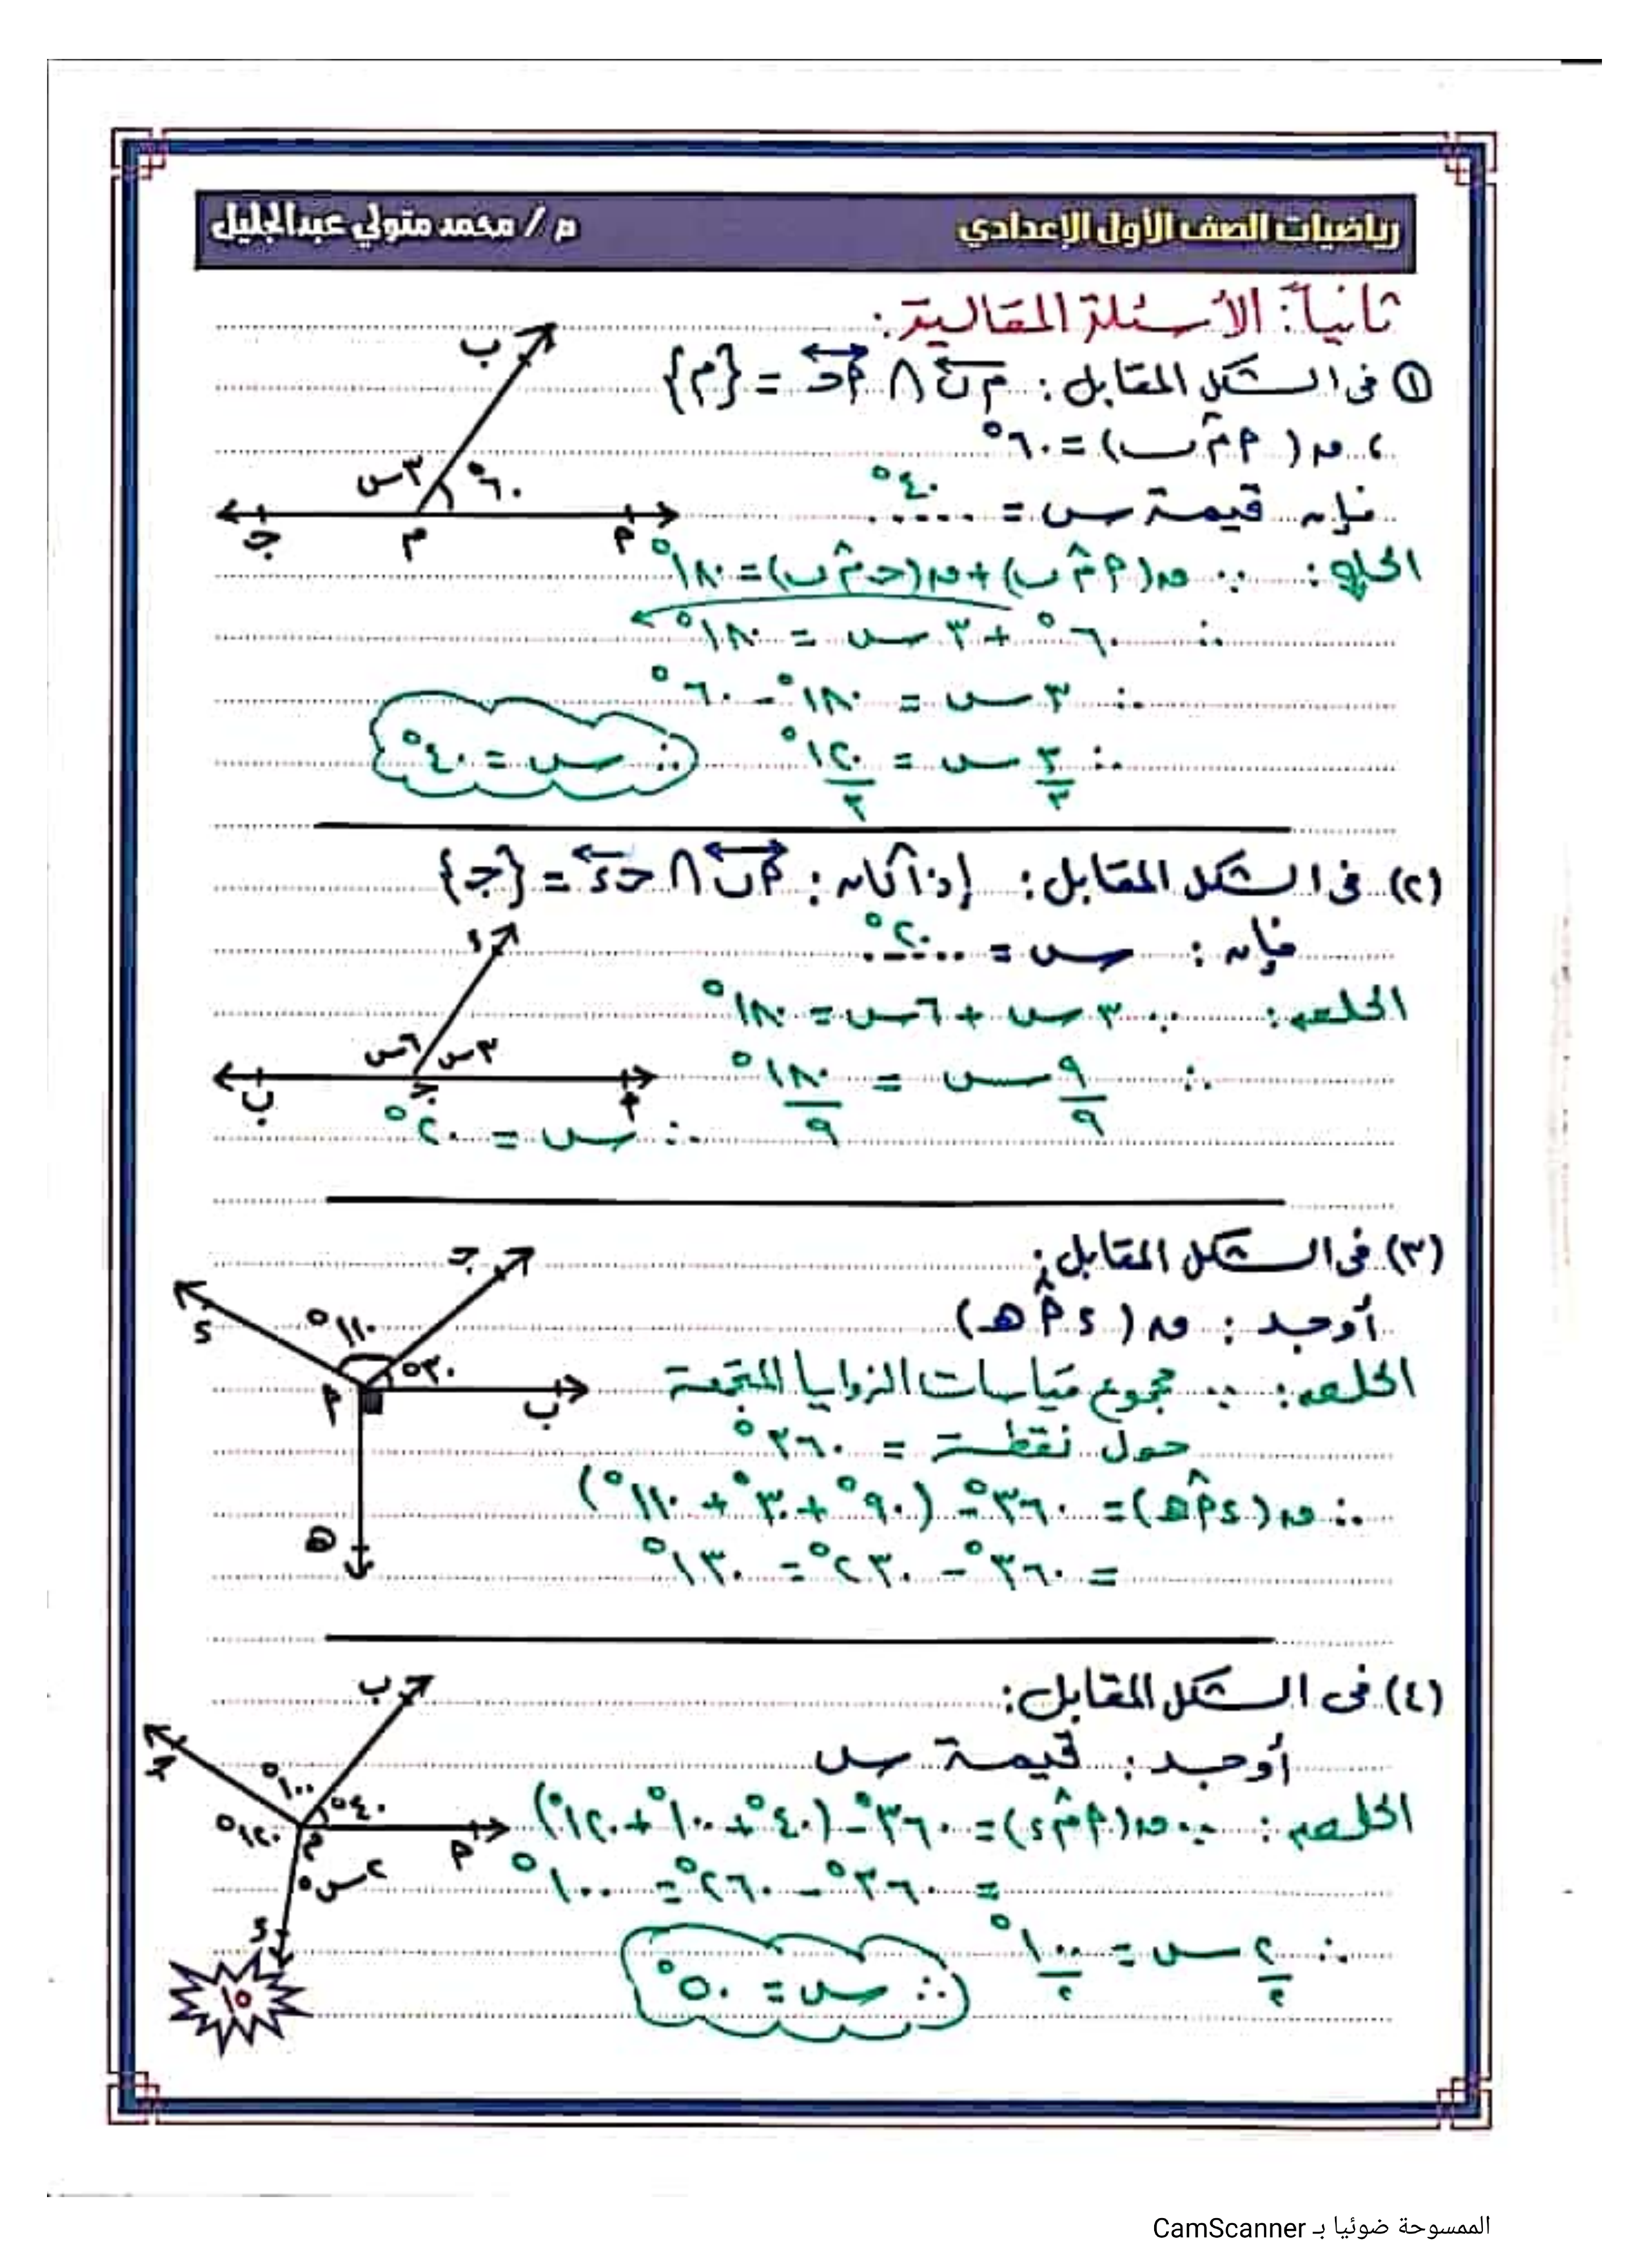 رياضيات الصف الأول الإعدادي
م / محمد متولي عبدالجليل
ثانياً: الأسئلة المقالية:
① فى الشكل المقابل: م ب ∩ أ ج = {م}
، ق( أ م̂ ب) = ٦٠°
فإن قيمة س = ٤٠°
الحل: ∵ ق(أ م̂ ب) + ق(ج م̂ ب) = ١٨٠°
∴ ٦٠° + ٣ س = ١٨٠°
∴ ٣ س = ١٨٠° - ٦٠°
∴ ٣/٣ س = ١٢٠°/٣ ∴ س = ٤٠°
ب
٣س ٦٠°
أ م ج
(٢) فى الشكل المقابل: إذا كان: أ ب ∩ ج د = {ج}
فإن: س = ٢٠°
الحل: ∵ ٣ س + ٦ س = ١٨٠°
∴ ٩/٩ س = ١٨٠°/٩
∴ س = ٢٠°
د
٦س ٣س
أ ج ب
(٣) فى الشكل المقابل:
أوجد: ق( د أ̂ هـ)
الحل: ∵ مجموع قياسات الزوايا المتجمعة
حول نقطة = ٣٦٠°
∴ ق(د أ̂ هـ) = ٣٦٠° - (٩٠° + ٣٠° + ١١٠°)
= ٣٦٠° - ٢٣٠° = ١٣٠°
ج
د
١١٠°
٣٠°
أ
ب
هـ
(٤) فى الشكل المقابل:
أوجد: قيمة س
الحل: ∵ ق(أ م̂ د) = ٣٦٠° - (٤٠° + ١٠٠° + ١٢٠°)
= ٣٦٠° - ٢٦٠° = ١٠٠°
∴ ٢/٢ س = ١٠٠°/٢ ∴ س = ٥٠°
ب
ج
١٠٠°
٤٠°
١٢٠°
م
أ
٢س°
د
١٥
الممسوحة ضوئيا بـ CamScanner